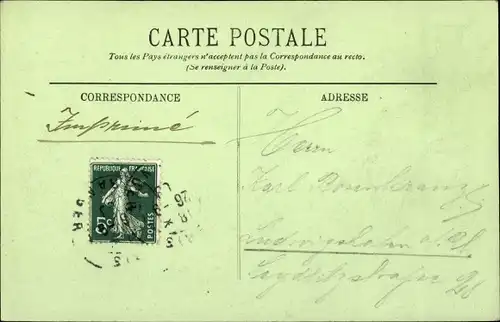 CARTE POSTALE
Tous les Pays étrangers n'acceptent pas la Correspondance au recto.
(Se renseigner à la Poste).
CORRESPONDANCE
ADRESSE
Imprimé
REPUBLIQUE FRANÇAISE
5c
POSTES
Herrn
Karl Rosenkranz
Ludwigshafen a. Rh.